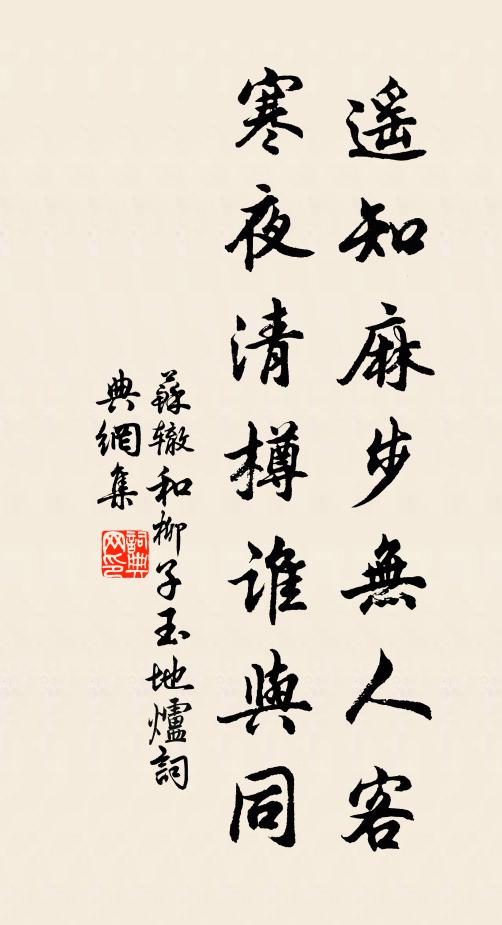 遥知麻步無人客
寒夜清樽誰與同
蘇辙和柳子玉地爐詞
典網集
詞典网印